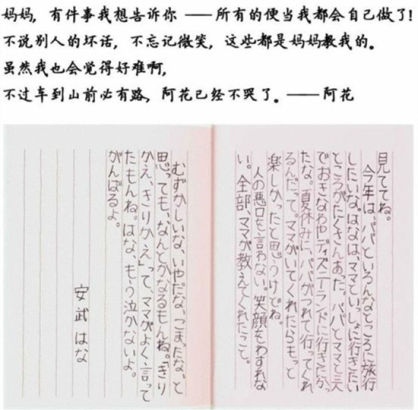 妈妈，有件事我想告诉你 ——所有的便当我都会自己做了!
不说别人的坏话，不忘记微笑，这些都是妈妈教我的。
虽然我也会觉得好难啊，
不过车到山前必有路，阿花已经不哭了。——阿花
見ててね。
今年は、パパといろんなところに旅行
したいな。はなは、ママといっしょに行きたい
ところがたくさんあった。パパとママと三人
でおきなわやディズニーランドに行きたかっ
たな。夏休みに、パパがつれて行ってくれ
るんだって。ママがいてくれたらもっと
楽しかったと思うけどね。
人の悪口も言わない。笑顔もわすれな
い。全部、ママが教えてくれたこと。
むずかしいな、いやだな、こまったな、と
思っても、なんとかなるもんね。「きり
かえ、きりかえ」って、ママがよく言って
たもんね。はな、もう泣かないよ。
がんばるよ。
安武はな